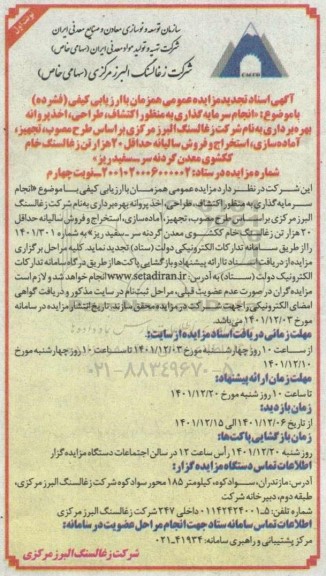 نوبت اول
سازمان توسعه و نوسازی معادن و صنایع معدنی ایران
شرکت تهیه و تولید مواد معدنی ایران (سهامی خاص)
شرکت زغالسنگ البرز مرکزی (سهامی خاص)
آگهی اسناد تجدید مزایده عمومی همزمان با ارزیابی کیفی (فشرده)
با موضوع: «انجام سرمایه گذاری به منظور اکتشاف، طراحی، اخذ پروانه
بهره برداری به نام شرکت زغالسنگ البرز مرکزی بر اساس طرح مصوب، تجهیز،
آماده سازی، استخراج و فروش سالیانه حداقل ۲۰ هزار تن زغالسنگ خام
ککشوی معدن گردنه سر ـ سفید ریز»
شماره مزایده در ستاد: ۲۰۰۱۰۲۰۰۰۶۰۰۰۰۰۲ ـ نوبت چهارم
این شرکت در نظر دارد مزایده عمومی همزمان با ارزیابی کیفی با موضوع «انجام
سرمایه گذاری به منظور اکتشاف، طراحی، اخذ پروانه بهره برداری به نام شرکت زغالسنگ
البرز مرکزی بر اساس طرح مصوب، تجهیز، آماده سازی، استخراج و فروش سالیانه حداقل
۲۰ هزار تن زغالسنگ خام ککشوی معدن گردنه سر ـ سفید ریز» به شماره ۱۴۰۱/۳۰۱
را از طریق سامانه تدارکات الکترونیکی دولت (ستاد) تجدید نماید. کلیه مراحل برگزاری
مزایده از دریافت اسناد تا ارائه پیشنهاد و بازگشایی پاکت ها از طریق درگاه سامانه تدارکات
الکترونیک دولت (ستاد) به آدرس: www.setadiran.ir انجام خواهد شد و لازم است
مزایده گران در صورت عدم عضویت قبلی، مراحل ثبت نام در سایت مذکور و دریافت گواهی
امضای الکترونیکی را جهت شرکت در مزایده محقق سازند. تاریخ انتشار مزایده در سامانه
مورخ ۱۴۰۱/۱۲/۰۳ می باشد.
مهلت زمانی دریافت اسناد مزایده از سایت:
از ساعت ۱۰ روز چهارشنبه مورخ ۱۴۰۱/۱۲/۰۳ تا ساعت ۱۰ روز چهارشنبه مورخ
۱۴۰۱/۱۲/۱۰
مهلت زمان ارائه پیشنهاد:
تا ساعت ۱۰ روز شنبه مورخ ۱۴۰۱/۱۲/۲۰
زمان بازدید:
از تاریخ ۱۴۰۱/۱۲/۰۶ الی ۱۴۰۱/۱۲/۱۵
زمان بازگشایی پاکت ها:
روز شنبه ۱۴۰۱/۱۲/۲۰ رأس ساعت ۱۲ در سالن اجتماعات دستگاه مزایده گزار
اطلاعات تماس دستگاه مزایده گزار:
آدرس: مازندران، سوادکوه، کیلومتر ۱۸۵ محور سوادکوه شرکت زغالسنگ البرز مرکزی،
طبقه دوم، دبیرخانه شرکت
شماره تلفن: ۵ـ۰۱۱۴۲۴۲۴۰۰۱ داخلی ۲۴۷ شرکت زغالسنگ البرز مرکزی
اطلاعات تماس سامانه ستاد جهت انجام مراحل عضویت در سامانه:
مرکز پشتیبانی و راهبری سامانه: ۴۱۹۳۴ـ۰۲۱
شرکت زغالسنگ البرز مرکزی
۰۲۱-۸۸۳۴۹۶۷۰-۵